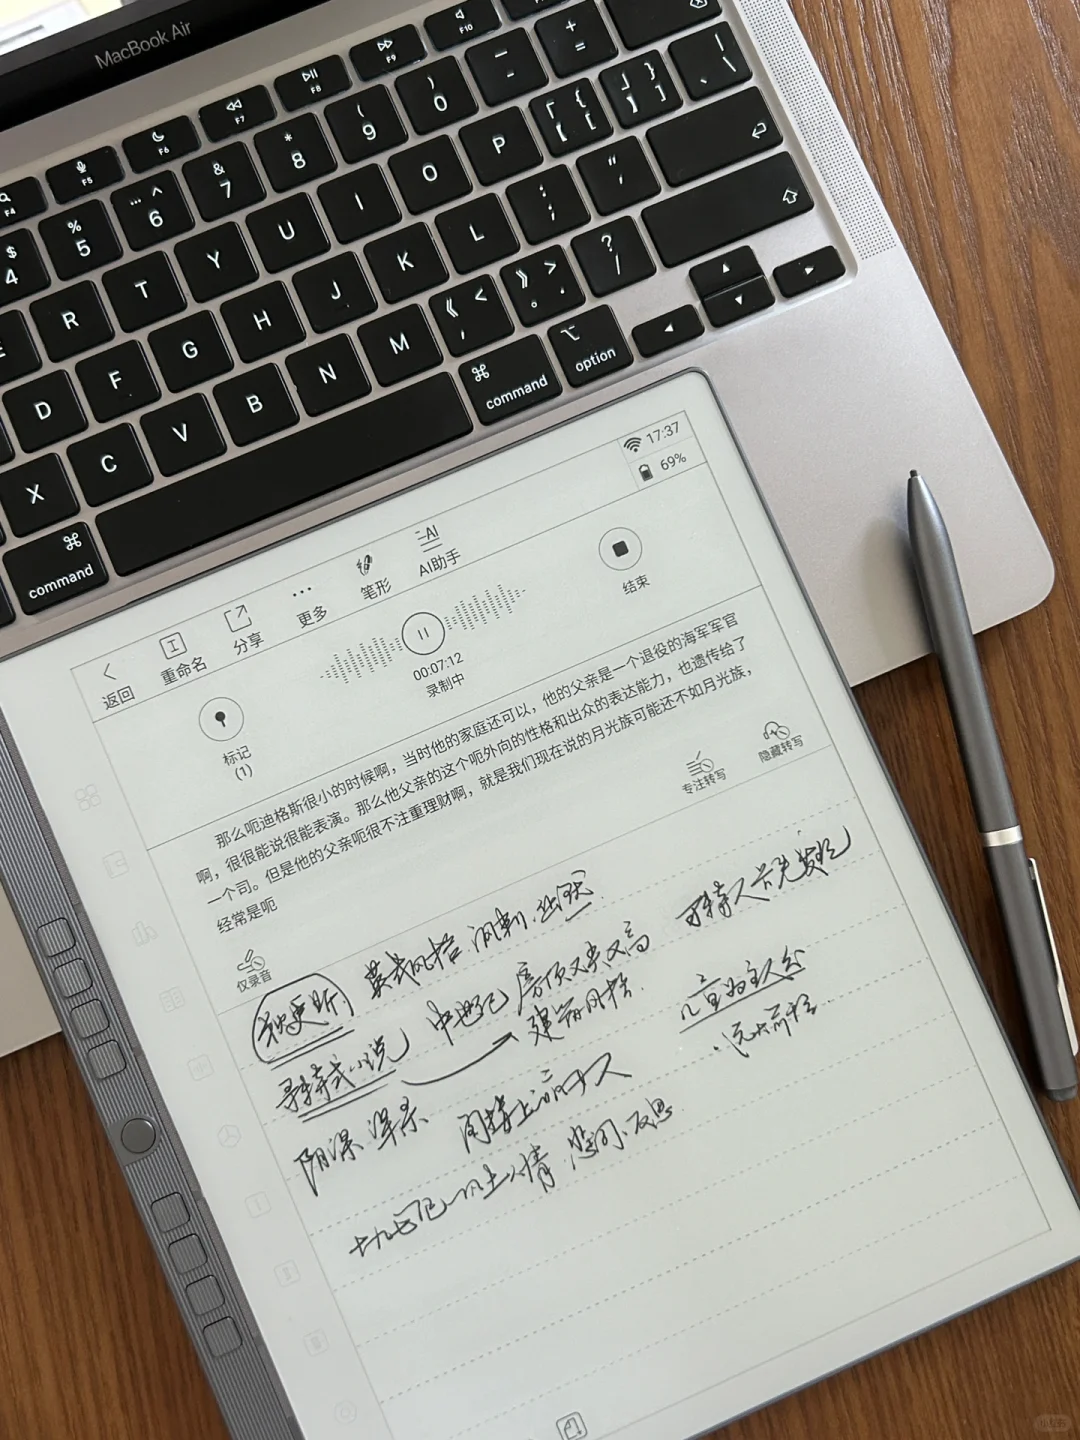 MacBook Air
F4 F5 F6 F7 F8 F9 F10
$ 4 % 5 …… ^ 6 & 7 * 8 ( 9 ) 0 — - + =
E R T Y U I O P 「 { 【 [ 」 } 】 ] 、 | \
D F G H J K L : ; " '
X C V B N M 《 < , 》 > 。 . ? /
command command option
17:37
69%
返回 重命名 分享 更多 笔形 AI助手
标记
(1)
00:07:12
录制中
结束
那么呃迪格斯很小的时候啊，当时他的家庭还可以，他的父亲是一个退役的海军军官
啊，很很能说很能表演。那么他父亲的这个呃外向的性格和出众的表达能力，也遗传给了
一个司。但是他的父亲呃很不注重理财啊，就是我们现在说的月光族可能还不如月光族，
经常是呃
仅录音 专注转写 隐藏转写
英式风格 讽刺 幽默
哥特式小说 中世纪 房顶又尖又高
建筑风格
儿童为主人公
阴深 谋杀
十九世纪 悲悯 反思